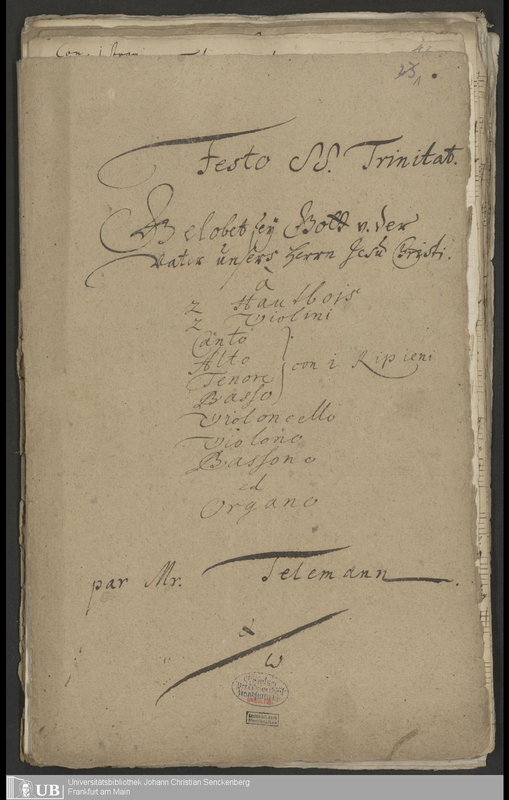 23
1
Festo SS. Trinitat.
Gelobet sey Gott v. der
Vater unsers Herrn Jesu Christi.
à
2 Hautbois
2 Violini
Canto
Alto
Tenore
Basso
con i Ripieni
Violoncello
Violone
Bassono
ed
Organo
par Mr. Telemann.
à
ω
UB
Universitätsbibliothek Johann Christian Senckenberg
Frankfurt am Main